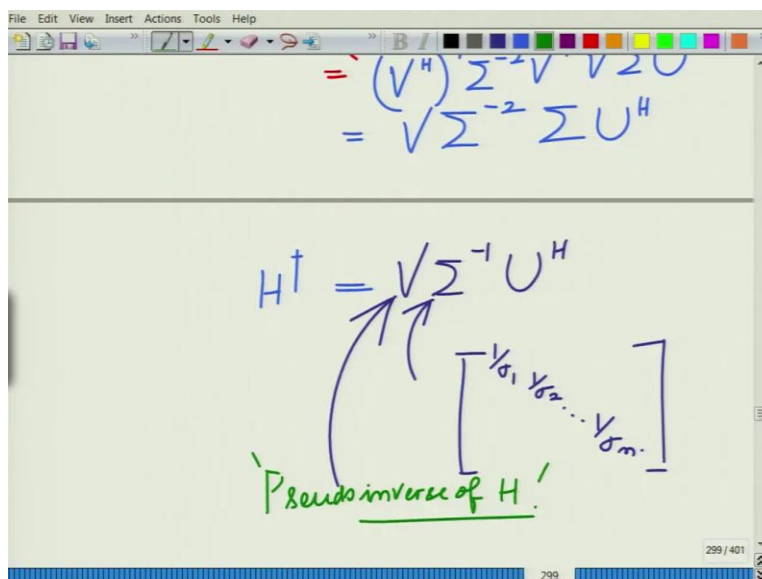 File Edit View Insert Actions Tools Help
B I
= (V^H)^{-1} Σ^{-2} V^{-1} V Σ U^H
= V Σ^{-2} Σ U^H
H† = V Σ^{-1} U^H
1/σ₁ 1/σ₂ ... 1/σₙ.
'Pseudo inverse of H'
299 / 401
299